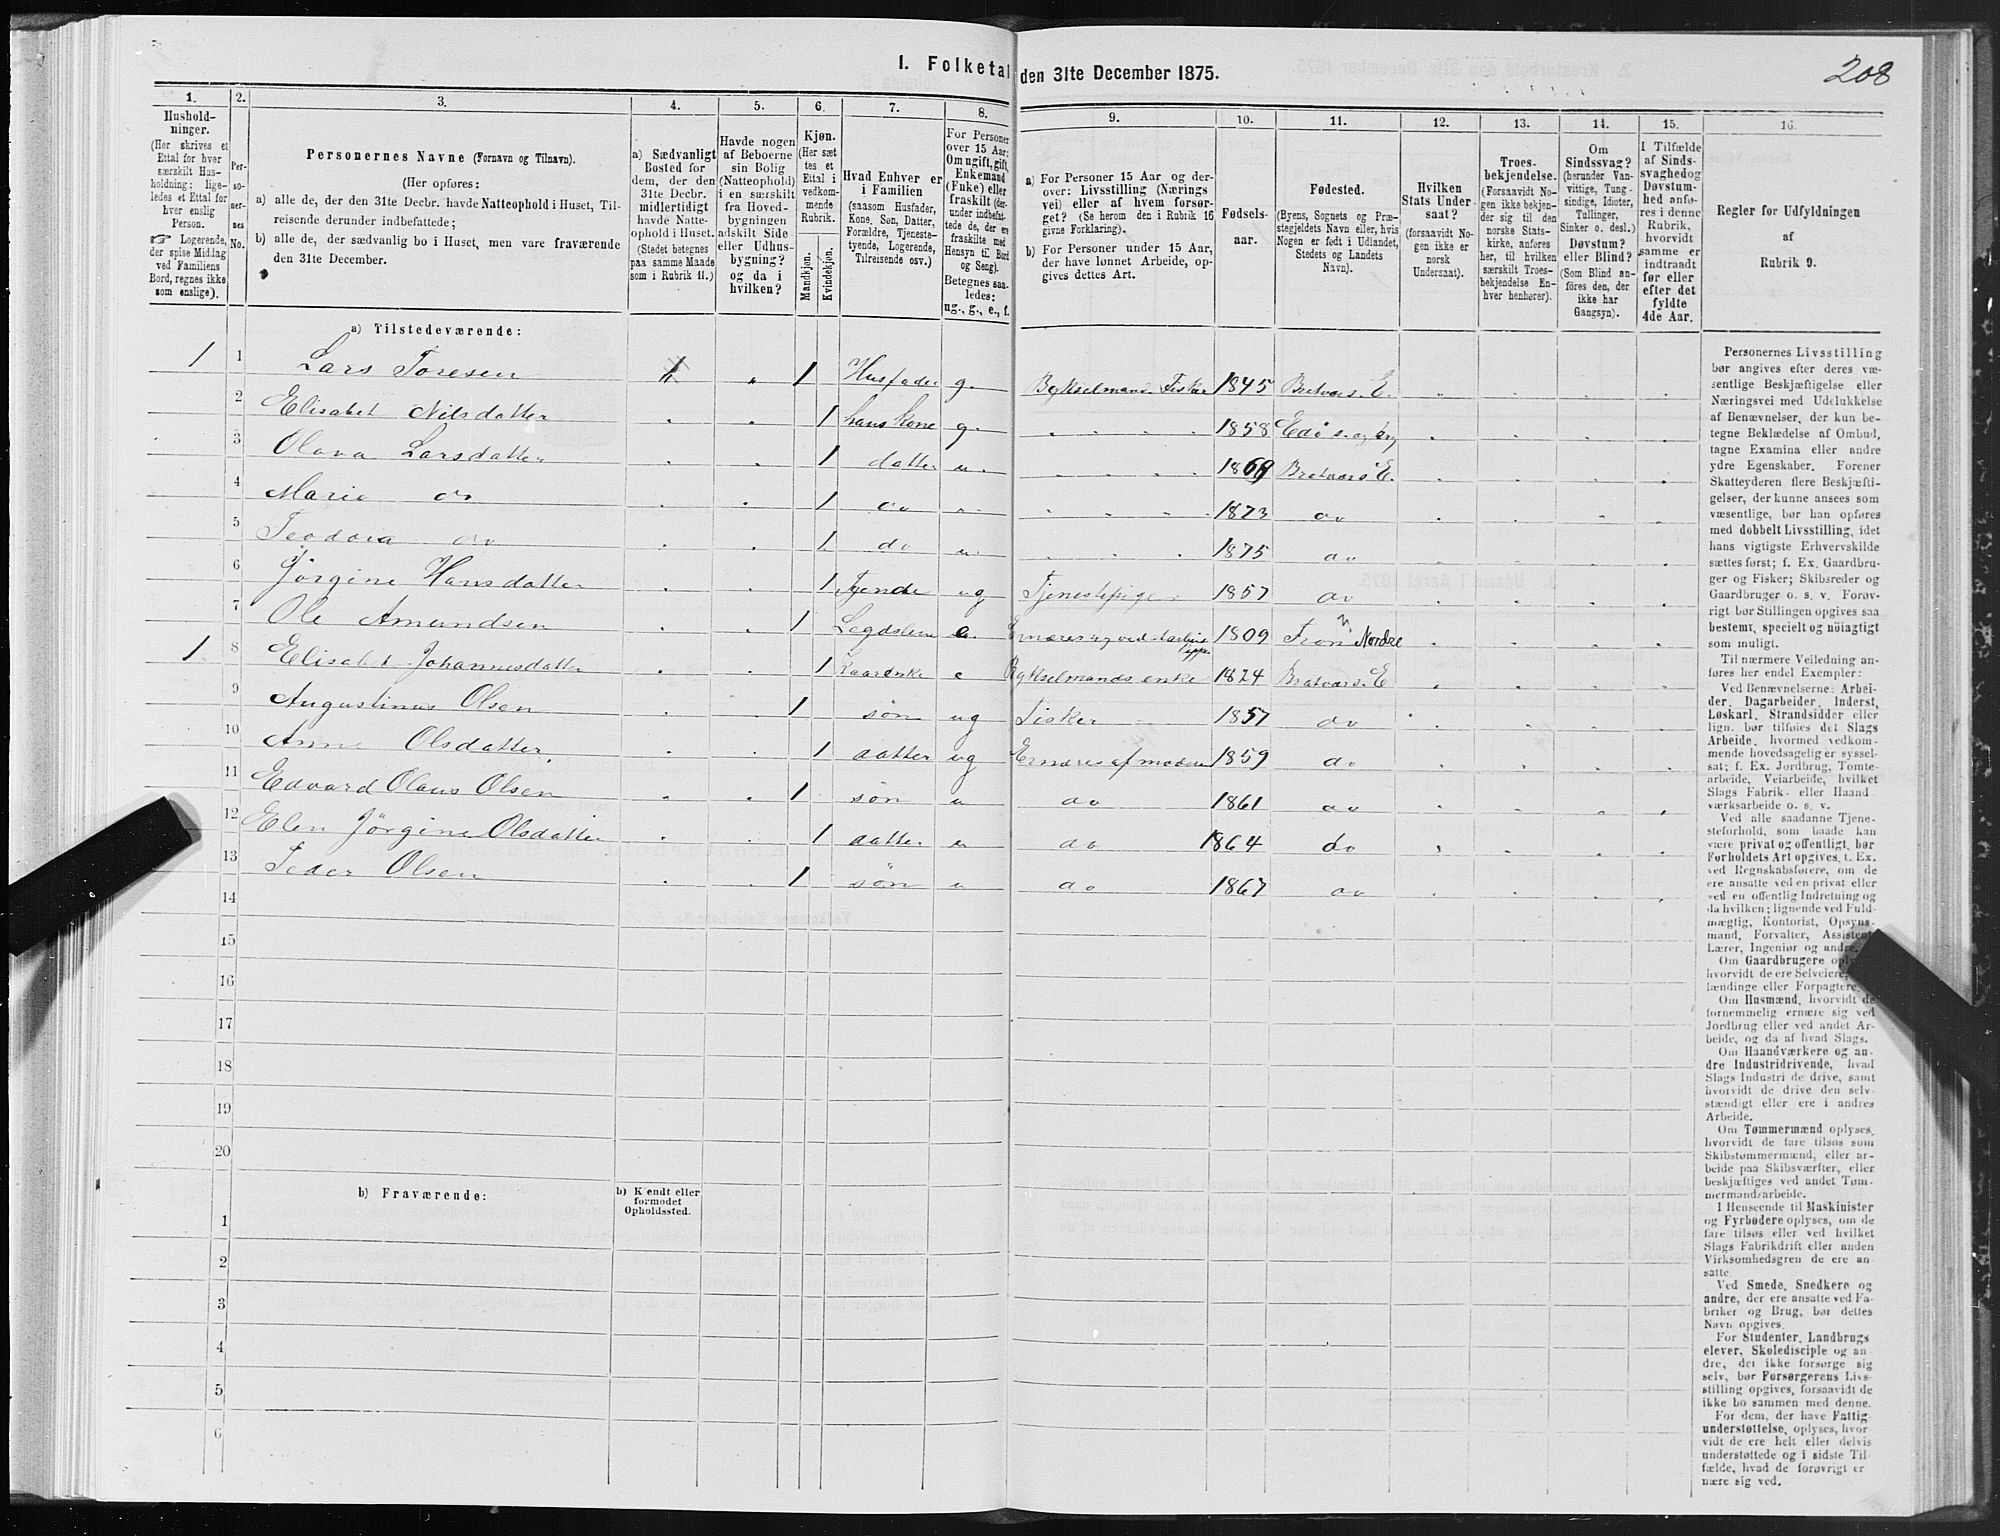 208
I. Folketal den 31te December 1875.
1. 2. 3. 4. 5. 6. 7. 8. 9. 10. 11. 12. 13. 14. 15. 16.
Husholdninger.
(Her skrives et
Ettal for hver
særskilt Husholdning;
ligeledes et Ettal for
hver enslig
Person.
☞ Logerende,
der spise Middag
ved Familiens
Bord, regnes ikke
som enslige).
Personernes No.
Personernes Navne (Fornavn og Tilnavn).
(Her opføres:
a) alle de, der den 31te Decbr. havde Natteophold i Huset, Tilreisende derunder indbefattede;
b) alle de, der sædvanlig bo i Huset, men vare fraværende
den 31te December.
a) Sædvanligt
Bosted for
dem, der den
31te Decbr.
midlertidigt
havde Natteophold i Huset.
(Stedet betegnes
paa samme Maade
som i Rubrik 11.)
Havde nogen
af Beboerne
sin Bolig
(Natteophold)
i en særskilt
fra Hovedbygningen
adskilt Side
eller Udhusbygning?
og da i
hvilken?
Kjøn.
(Her sættes et
Ettal i
vedkommende
Rubrik.
Mandkjøn.
Kvindekjøn.
Hvad Enhver er
i Familien
(saasom Husfader,
Kone, Søn, Datter,
Forældre, Tjenestetyende, Logerende,
Tilreisende osv.)
For Personer
over 15 Aar:
Om ugift, gift,
Enkemand
(Enke) eller
fraskilt (derunder indbefattede de, der ere
fraskilte med
Hensyn til Bord
og Seng).
Betegnes saaledes:
ug., g., e., f.
a) For Personer 15 Aar og derover: Livsstilling (Næringsvei) eller af hvem forsørget? (Se herom den i Rubrik 16
givne Forklaring).
b) For Personer under 15 Aar,
der have lønnet Arbeide, opgives dettes Art.
Fødselsaar.
Fødested.
(Byens, Sognets og Præstegjeldets Navn eller, hvis
Nogen er født i Udlandet,
Stedets og Landets
Navn).
Hvilken
Stats Undersaat?
(forsaavidt Nogen ikke er
norsk
Undersaat).
Troesbekjendelse.
(Forsaavidt Nogen ikke bekjender sig til den
norske Statskirke, anføres
her, til hvilken
særskilt Troesbekjendelse Enhver henhører).
Om
Sindssvag?
(herunder Vanvittige, Tungsindige, Idioter,
Tullinger,
Sinker o. desl.)
Døvstum?
eller Blind?
(Som Blind anføres den, der
ikke har
Gangsyn).
I Tilfælde
af Sindssvaghed og
Døvstumhed anføres i denne
Rubrik,
hvorvidt
samme er
indtraadt
før eller
efter det
fyldte
4de Aar.
Regler for Udfyldningen
af
Rubrik 9.
a) Tilstedeværende:
1 1 Lars Toresen 1 Husfader g. Bykselmand Fisker 1845 Bratvær s. E.
2 Elisabet Nilsdatter 1 hans kone g. 1858 Edø s. og
3 Olava Larsdatter 1 datter u. 1869 Bratvær s E.
4 Marie do 1 do 1873 do
5 Teodora do 1 do u. 1875 do
6 Jørgine Hansdatter 1 Tyende ug Tjenestepige 1857 do
7 Ole Amundsen 1 Legdslem e. 1809 Fron Nordre
1 8 Elisabet Johannesdatter 1 Kaarenke e Bykselmands enke 1824 Bratvær s. E
9 Augustinus Olsen 1 søn ug Fisker 1857 do
10 Anne Olsdatter 1 datter ug Ernæres af moderen 1859 do
11 Edvard Olaus Olsen 1 søn u do 1861 do
12 Elen Jørgine Olsdatter 1 datter u do 1864 do
13 Peder Olsen 1 søn u do 1867 do
14
15
16
17
18
19
20
b) Fraværende:
b) Kjendt eller
formodet
Opholdssted.
1
2
3
4
5
6
Personernes Livsstilling
bør angives efter deres væsentlige Beskjæftigelse eller
Næringsvei med Udelukkelse
af Benævnelser, der kun betegne Beklædelse af Ombud,
tagne Examina eller andre
ydre Egenskaber. Forener
Skatteyderen flere Beskjæftigelser, der kunne ansees som
væsentlige, bør han opføres
med dobbelt Livsstilling, idet
hans vigtigste Erhvervskilde
sættes først; f. Ex. Gaardbruger og Fisker; Skibsreder og
Gaardbruger o. s. v. Forøvrigt bør Stillingen opgives saa
bestemt, specielt og nöiagtigt
som muligt.
Til nærmere Veiledning anføres her endel Exempler:
Ved Benævnelserne: Arbeider, Dagarbeider, Inderst,
Løskarl, Strandsidder eller
lign. bør tilføies det Slags
Arbeide, hvormed vedkommende hovedsagelig er sysselsat; f. Ex. Jordbrug, Tomtearbeide, Veiarbeide, hvilket
Slags Fabrik- eller Haandværksarbeide o. s. v.
Ved alle saadanne Tjenesteforhold, som baade kan
være privat og offentligt, bør
Forholdets Art opgives, t. Ex.
ved Regnskabsførere, om de
ere ansatte ved en privat eller
ved en offentlig Indretning og
da hvilken; lignende ved Fuldmægtig, Kontorist, Opsynsmand, Forvalter, Assistent,
Lærer, Ingeniør og andre.
Om Gaardbrugere
hvorvidt de ere Selveiere,
lændinge eller Forpagtere.
Om Husmænd, hvorvidt de
fornemmelig ernære sig ved
Jordbrug eller ved andet Arbeide, og da af hvad Slags.
Om Haandværkere og andre Industridrivende, hvad
Slags Industri de drive, samt
hvorvidt de drive den selvstændigt eller ere i andres
Arbeide.
Om Tømmermænd oplyses,
hvorvidt de fare tilsøs som
Skibstømmermænd, eller arbeide paa Skibsværfter, eller
beskjæftiges ved andet Tømmermandsarbeide.
I Henseende til Maskinister
og Fyrbødere oplyses, om de
fare tilsøs eller ved hvilket
Slags Fabrikdrift eller anden
Virksomhedsgren de ere ansatte.
Ved Smede, Snedkere og
andre, der ere ansatte ved Fabriker og Brug, bør dettes
Navn opgives.
For Studenter, Landbrugselever, Skoledisciple og andre, der ikke forsørge sig
selv, bør Forsørgerens Livsstilling opgives, forsaavidt de
ikke bo sammen med denne.
For dem, der have Fattigunderstøttelse, oplyses, hvorvidt de ere helt eller delvis
understøttede og i sidste Tilfælde, hvad de forøvrigt ernære sig ved.